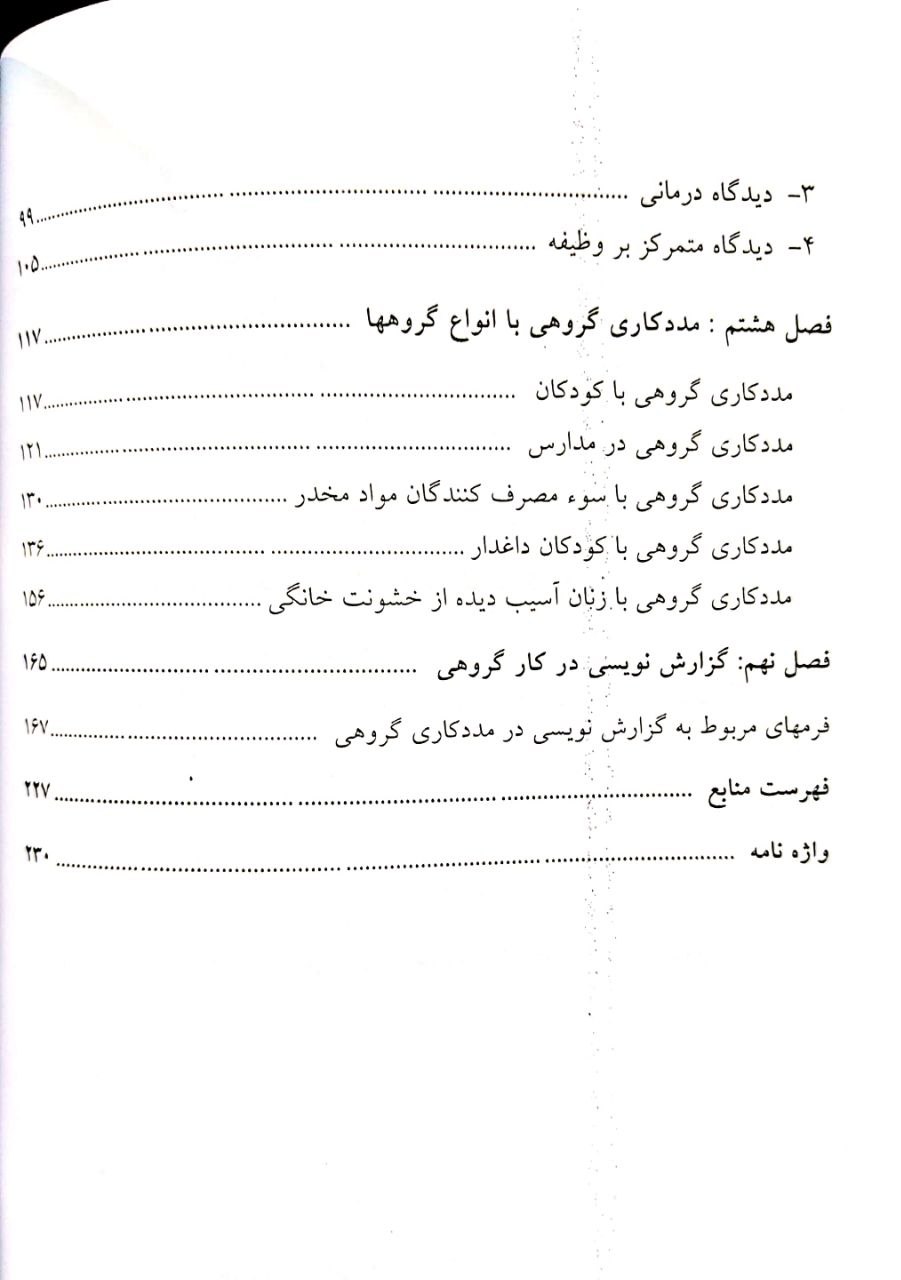 ۳- دیدگاه درمانی ................................................ ۹۹
۴- دیدگاه متمرکز بر وظیفه ................................................ ۱۰۵
فصل هشتم : مددکاری گروهی با انواع گروهها ................................................ ۱۱۷
مددکاری گروهی با کودکان ................................................ ۱۱۷
مددکاری گروهی در مدارس ................................................ ۱۲۱
مددکاری گروهی با سوء مصرف کنندگان مواد مخدر ................................................ ۱۳۰
مددکاری گروهی با کودکان داغدار ................................................ ۱۳۶
مددکاری گروهی با زنان آسیب دیده از خشونت خانگی ................................................ ۱۵۶
فصل نهم: گزارش نویسی در کار گروهی ................................................ ۱۶۵
فرمهای مربوط به گزارش نویسی در مددکاری گروهی ................................................ ۱۶۷
فهرست منابع ................................................ ۲۲۷
واژه نامه ................................................ ۲۳۰